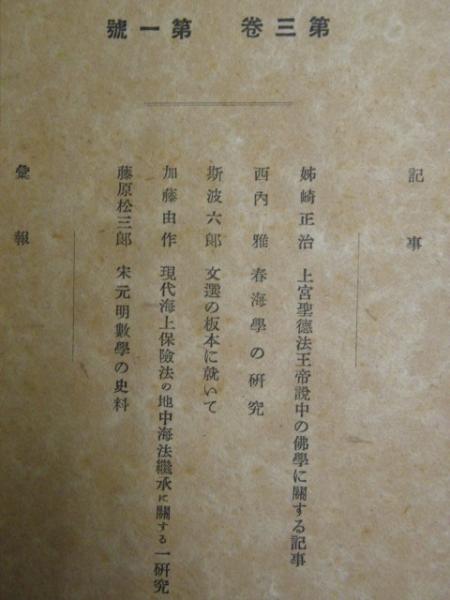 第三卷 第一號
記事
姉崎正治 上宮聖德法王帝說中の佛學に關する記事
西內雅 春海學の硏究
斯波六郎 文選の板本に就いて
加藤由作 現代海上保險法の地中海法繼承に關する一硏究
藤原松三郎 宋元明數學の史料
彙報